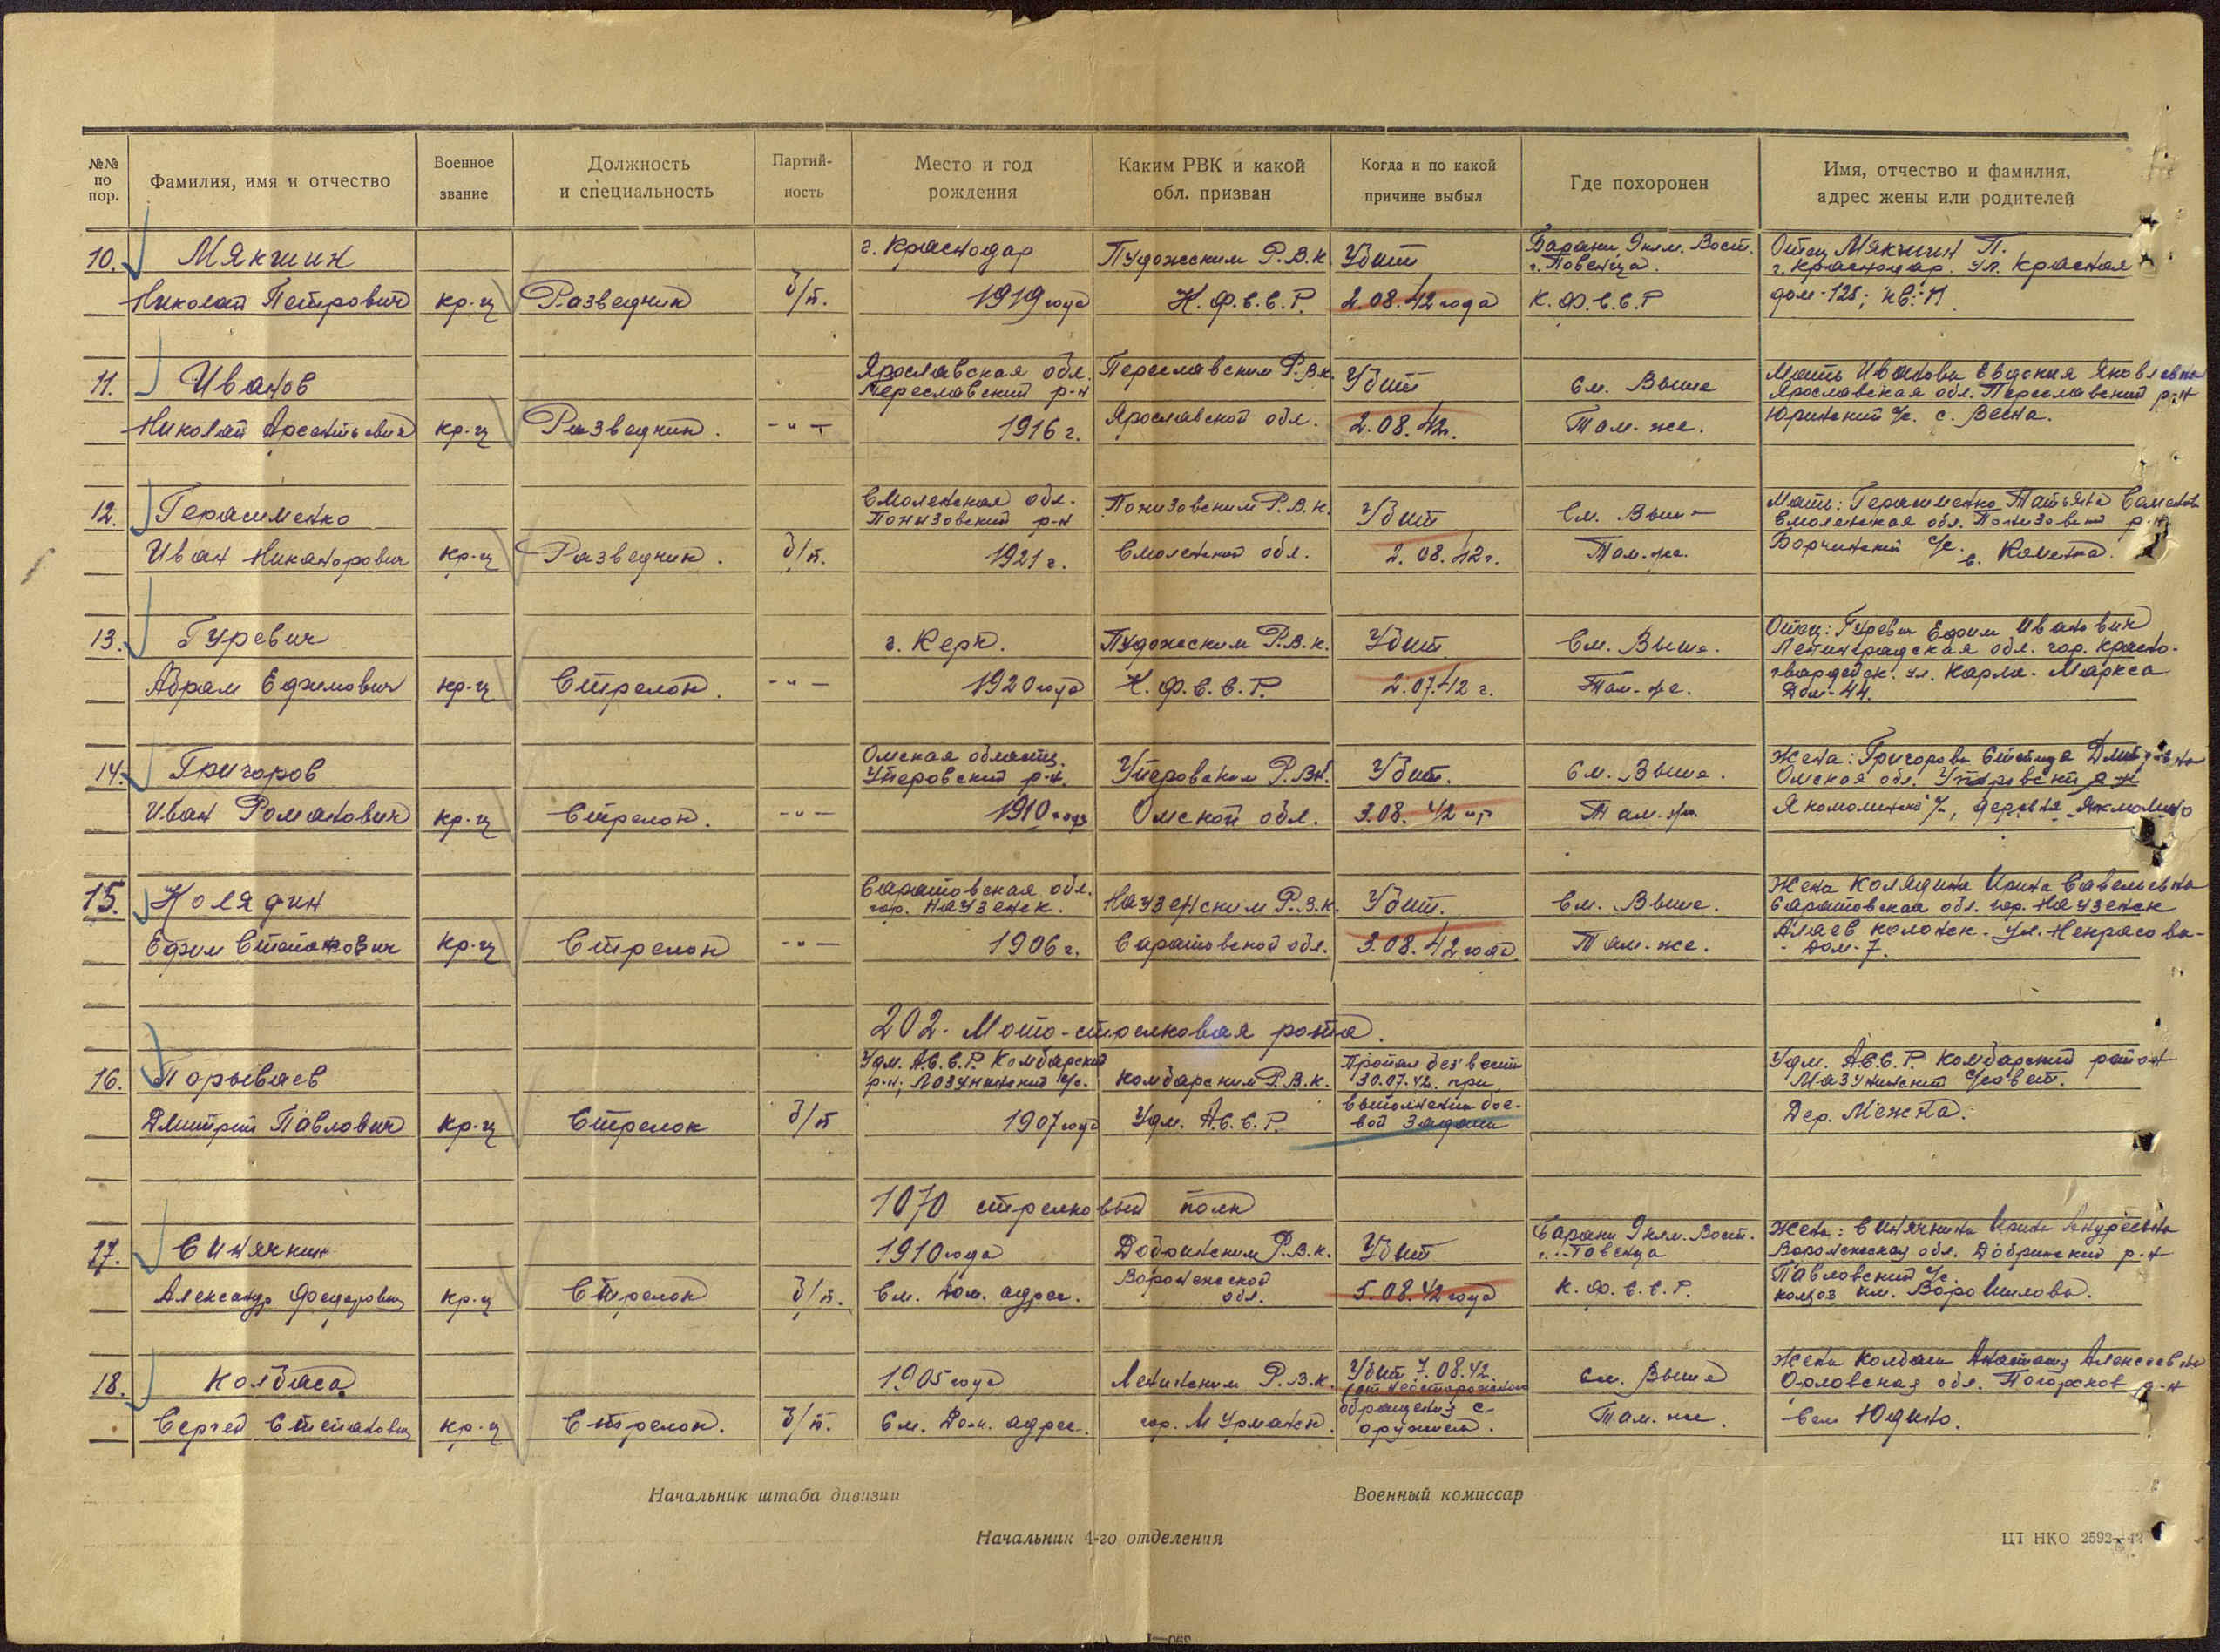 №№ по пор. Фамилия, имя и отчество Военное звание Должность и специальность Партий-ность Место и год рождения Каким РВК и какой обл. призван Когда и по какой причине выбыл Где похоронен Имя, отчество и фамилия, адрес жены или родителей
10. Мякшин г. Краснодар Пудожским Р.В.К. Убит Барани 9 клм. Вост. г. Повенца. Отец Мякшин П. г. Краснодар. ул. Красная
Николай Петрович кр-ц Разведчик б/п. 1919 года К.Ф.С.С.Р. 2.08.42 года К.Ф.С.С.Р дом-128; кв:-11
11. Иванов Ярославская обл. Переславский р-н Переславским Р.В.К. Убит См. Выше Мать Иванова Евдокия Яковлевна Ярославская обл. Переславский р-н
Николай Арсентьевич кр-ц Разведчик. -"- 1916 г. Ярославской обл. 2.08.42г. Там-же. Юринский с/с. с. Весна.
12. Герасименко Смоленская обл. Понизовский р-н Понизовским Р.В.К. Убит См. Выше Мать: Герасименко Татьяна Смоленская обл. Понизовский р-н
Иван Никанорович кр-ц Разведчик. б/п. 1921 г. Смоленской обл. 2.08.42г. Там-же. с/с. Каменка.
13. Гуревич г. Керч. Пудожским Р.В.К. Убит См. Выше. Отец: Гуревич Ефим Иванович Ленинградская обл. гор. Красно-
Абрам Ефимович кр-ц Стрелок. -"- 1920 года К.Ф.С.С.Р. 2.07.42 г. Там-же. гвардейск. ул. Карла-Маркса Дом-44.
14. Григоров Омская область. Упоровский р-н. Упоровским Р.В.К. Убит. См. Выше. Жена: Григорова Омская обл. Упоровский р-н
Иван Романович кр-ц Стрелок. -"- 1910 года Омской обл. 3.08.42 Там-же с/с, деревня
15. Колядин Саратовская обл. гор. Наузенск. Наузенским Р.В.К. Убит. См. Выше. Жена Колядина Ирина Савельевна Саратовская обл. гор. Наузенск
Ефим Степанович кр-ц Стрелок -"- 1906 г. Саратовской обл. 3.08.42 года. Там-же. ул. Некрасова- Дом-7.
202. Мото-стрелковая рота.
16. Порываев Удм. А.С.С.Р. Комбарский р-н; с/с. Комбарским Р.В.К. Пропал без вести 30.07.42. при Удм. А.С.С.Р. Комбарский район Мазунинский с/совет.
Дмитрий Павлович кр-ц Стрелок б/п 1907 года Удм. А.С.С.Р. выполнении бое-вой задачи Дер. Межна.
1070 стрелковый полк
17. Синячкин 1910 года Добринским Р.В.К. Убит Барани 9 клм. Вост. г. Повенца Жена: Синячкина Ирина Андреевна Воронежская обл. Добринский р-н
Александр Федорович кр-ц Стрелок б/п. См. дом. адрес. Воронежской обл. 5.08.42 года К.Ф.С.С.Р. Павловский с/с. колхоз им. Ворошилова.
18. Колбаса 1905 года Ленинским Р.В.К. Убит 7.08.42. от неосторожного См. Выше Жена Колбаса Анастасия Алексеевна Орловская обл. р-н
Сергей Степанович кр-ц Стрелок. б/п. См. Дом. адрес. гор. Мурманск. обращения с оружием. Там-же. село Юдино.
Начальник штаба дивизии Военный комиссар
Начальник 4-го отделения
ЦТ НКО 2592—42